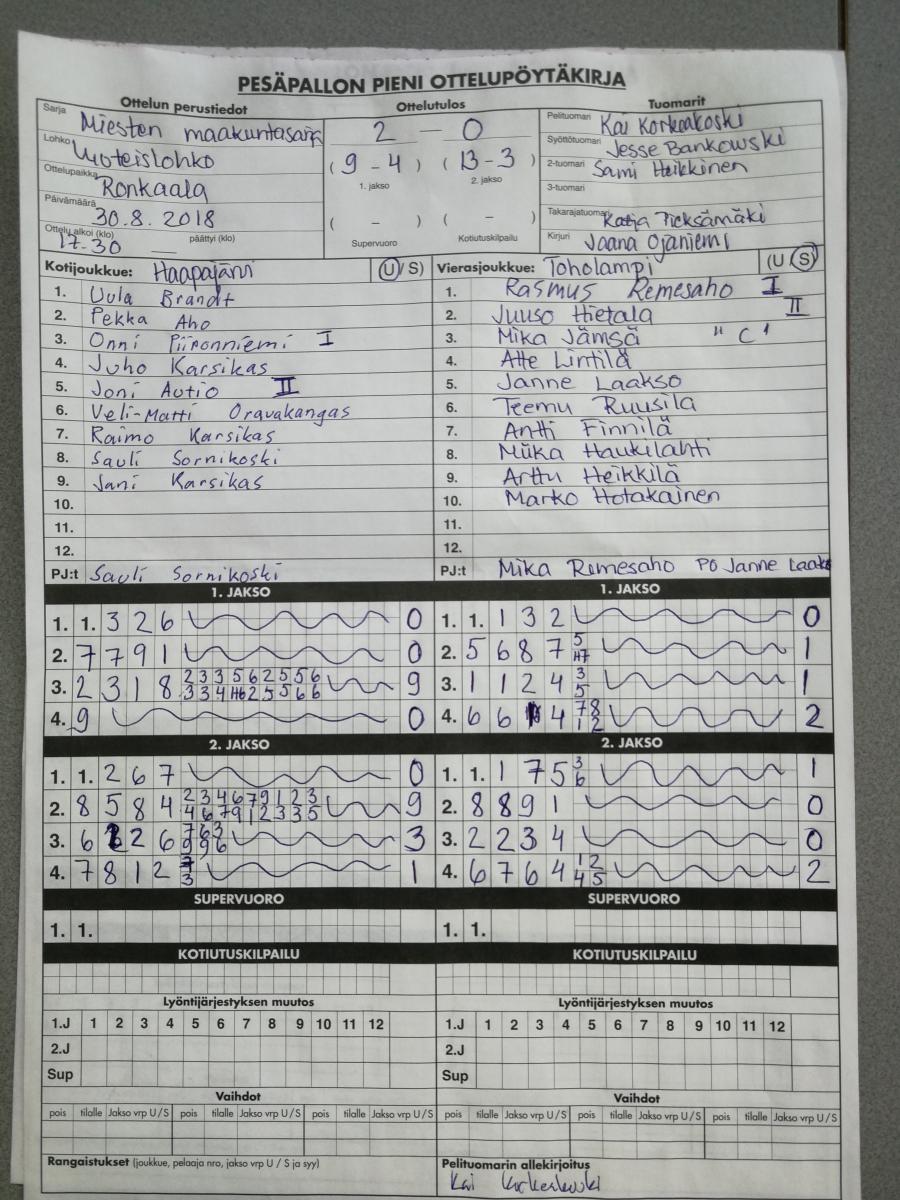 PESÄPALLON PIENI OTTELUPÖYTÄKIRJA
Ottelun perustiedot Ottelutulos Tuomarit
Sarja Miesten maakuntasarja
Lohko Vuoteislohko
Ottelupaikka Ronkaala
Päivämäärä 30.8.2018
Ottelu alkoi (klo) 17.30 päättyi (klo) —
2 – 0
(9 - 4) (13 - 3)
1. jakso 2. jakso
( - ) ( - )
Supervuoro Kotiutuskilpailu
Pelituomari Kai Korkeakoski
Syöttötuomari Jesse Bankowski
2-tuomari Sami Heikkinen
3-tuomari
Takarajatuomari Katja Pieksämäki
Kirjuri Jaana Ojaniemi
Kotijoukkue: Haapajärvi (U/S)
1. Uula Brandt
2. Pekka Aho
3. Onni Piironniemi I
4. Juho Karsikas
5. Joni Autio II
6. Veli-Matti Oravakangas
7. Raimo Karsikas
8. Sauli Sornikoski
9. Jani Karsikas
10.
11.
12.
PJ:t Sauli Sornikoski
Vierasjoukkue: Toholampi (U/S)
1. Rasmus Remesaho I
2. Juuso Hietala II
3. Mika Jämsä "C"
4. Atte Lintilä
5. Janne Laakso
6. Teemu Ruusila
7. Antti Finnilä
8. Miika Haukilahti
9. Arttu Heikkilä
10. Marko Hotakainen
11.
12.
PJ:t Mika Remesaho PO Janne Laakso
1. JAKSO 1. JAKSO
1. 1. 3 2 6 0 1. 1. 1 3 2 0
2. 7 7 9 1 0 2. 5 6 8 7 5 H7 1
3. 2 3 1 8 2 3 3 5 6 2 5 5 6 9 3. 1 1 2 4 3 1
3 3 4 H6 2 5 5 6 6 5
4. 9 0 4. 6 6 4 7 8 2
1 2
2. JAKSO 2. JAKSO
1. 1. 2 6 7 0 1. 1. 1 7 5 3 1
6
2. 8 5 8 4 2 3 4 6 7 9 1 2 3 9 2. 8 8 9 1 0
4 6 7 9 1 2 3 3 5
3. 6 2 2 6 7 6 3 3 3. 2 2 3 4 0
9 9 6
4. 7 8 1 2 3 1 4. 6 7 6 4 1 2 2
4 5
SUPERVUORO SUPERVUORO
1. 1. 1. 1.
KOTIUTUSKILPAILU KOTIUTUSKILPAILU
Lyöntijärjestyksen muutos Lyöntijärjestyksen muutos
1.J 1 2 3 4 5 6 7 8 9 10 11 12 1.J 1 2 3 4 5 6 7 8 9 10 11 12
2.J 2.J
Sup Sup
Vaihdot Vaihdot
pois tilalle Jakso vrp U/S pois tilalle Jakso vrp U/S pois tilalle Jakso vrp U/S pois tilalle Jakso vrp U/S pois tilalle Jakso vrp U/S pois tilalle Jakso vrp U/S
Rangaistukset (joukkue, pelaaja nro, jakso vrp U / S ja syy) Pelituomarin allekirjoitus
Kai